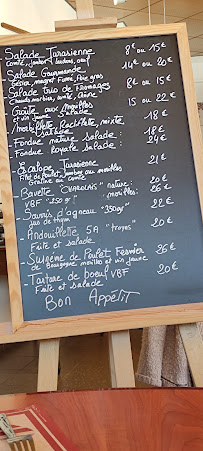 Salade Jurassienne 8€ ou 15€
Comté, jambon, lardons, oeuf
Salade Gourmande 14€ ou 20€
Gésier, magret Fumé, Foie gras
Salade trio de Fromages 8€ ou 15€
Chauds morbier, comté, chèvre
Croûte aux Morilles 15 ou 22€
et vin jaune Salade
Morbiflette, Rachiflette, mixte 18€
/ Salade
- Fondue nature salade : 18€
- Fondue Royale salade : 24€
- Escalope Jurassienne 21€
Filet de poulet, jambon ou morilles
Gratiné Comté
- Bavette "CHAROLAIS" nature : 20€
VBF "350 gr" morilles : 26€
- Souris d'agneau "350gr" 22€
jus de thym
- Andouillette 5A "troyes" 20€
Frite et salade
- Suprême de Poulet Fermier 26€
de Bourgogne morilles et vin jaune
- Tartare de boeuf VBF 20€
Frite et Salade
BON APPÉTIT